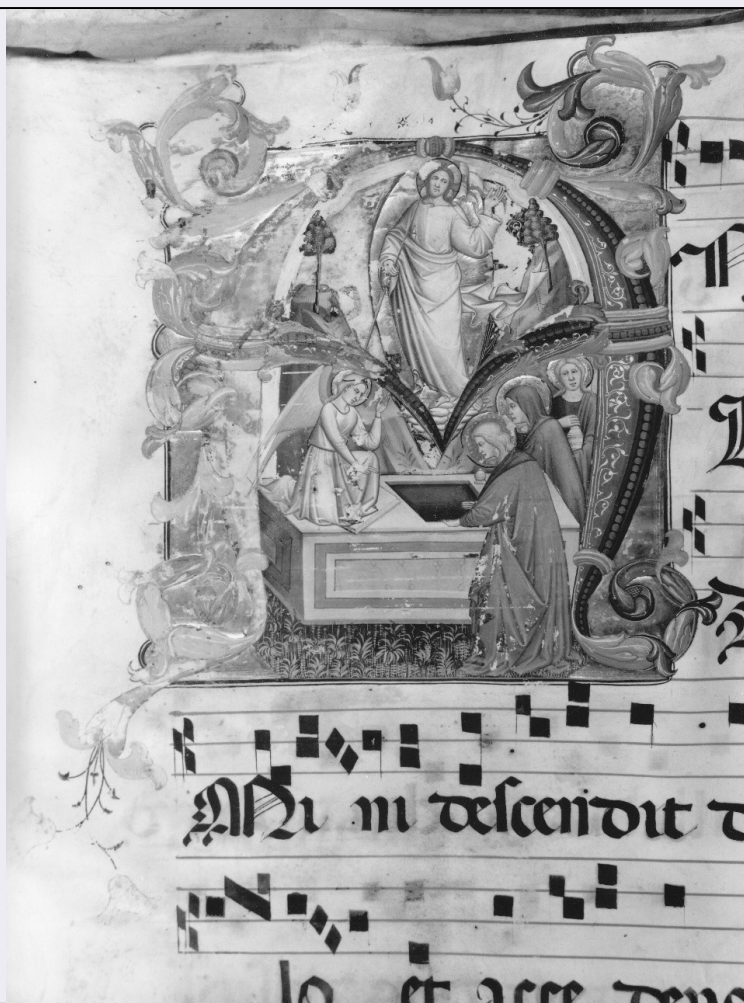 Mi ni descendit d
lo et acce dens